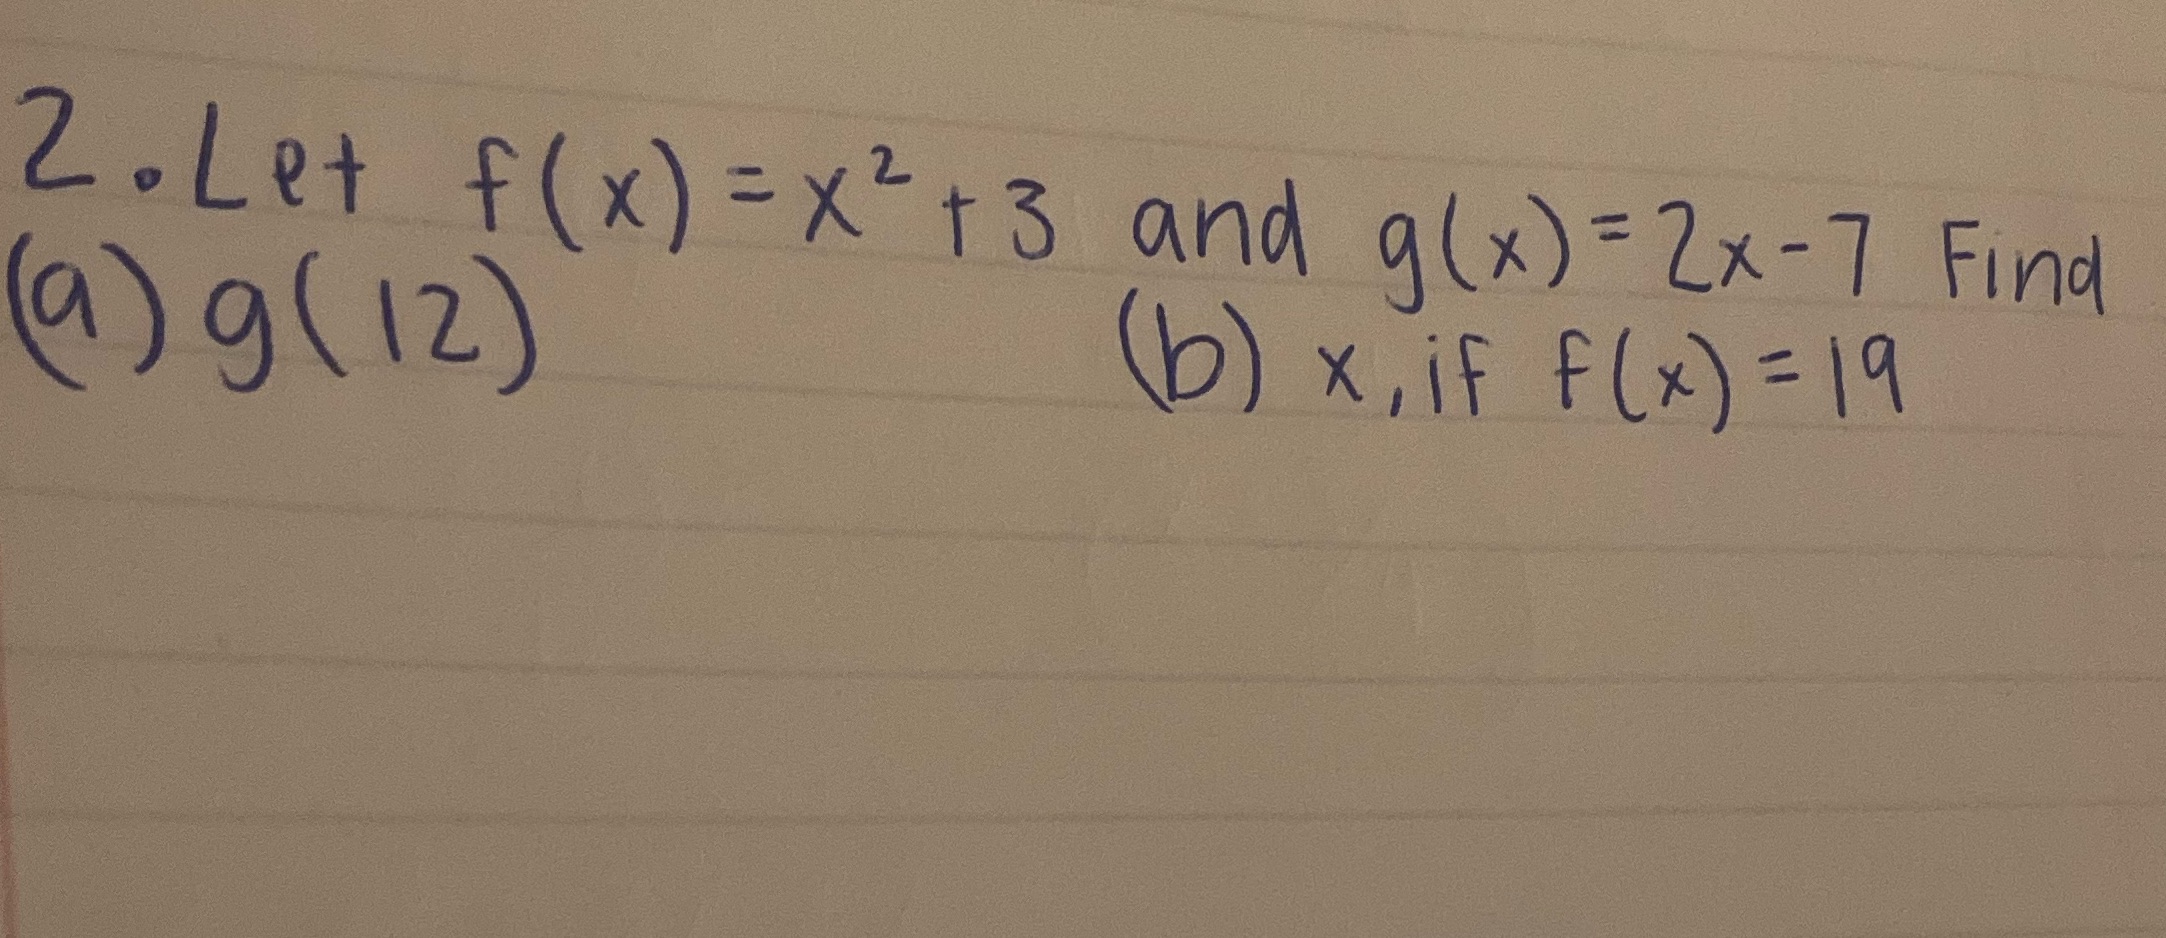 2. Let f(x) = x² + 3 and g(x) = 2x - 7 Find
(a) g(12) (b) x, if f(x) = 19